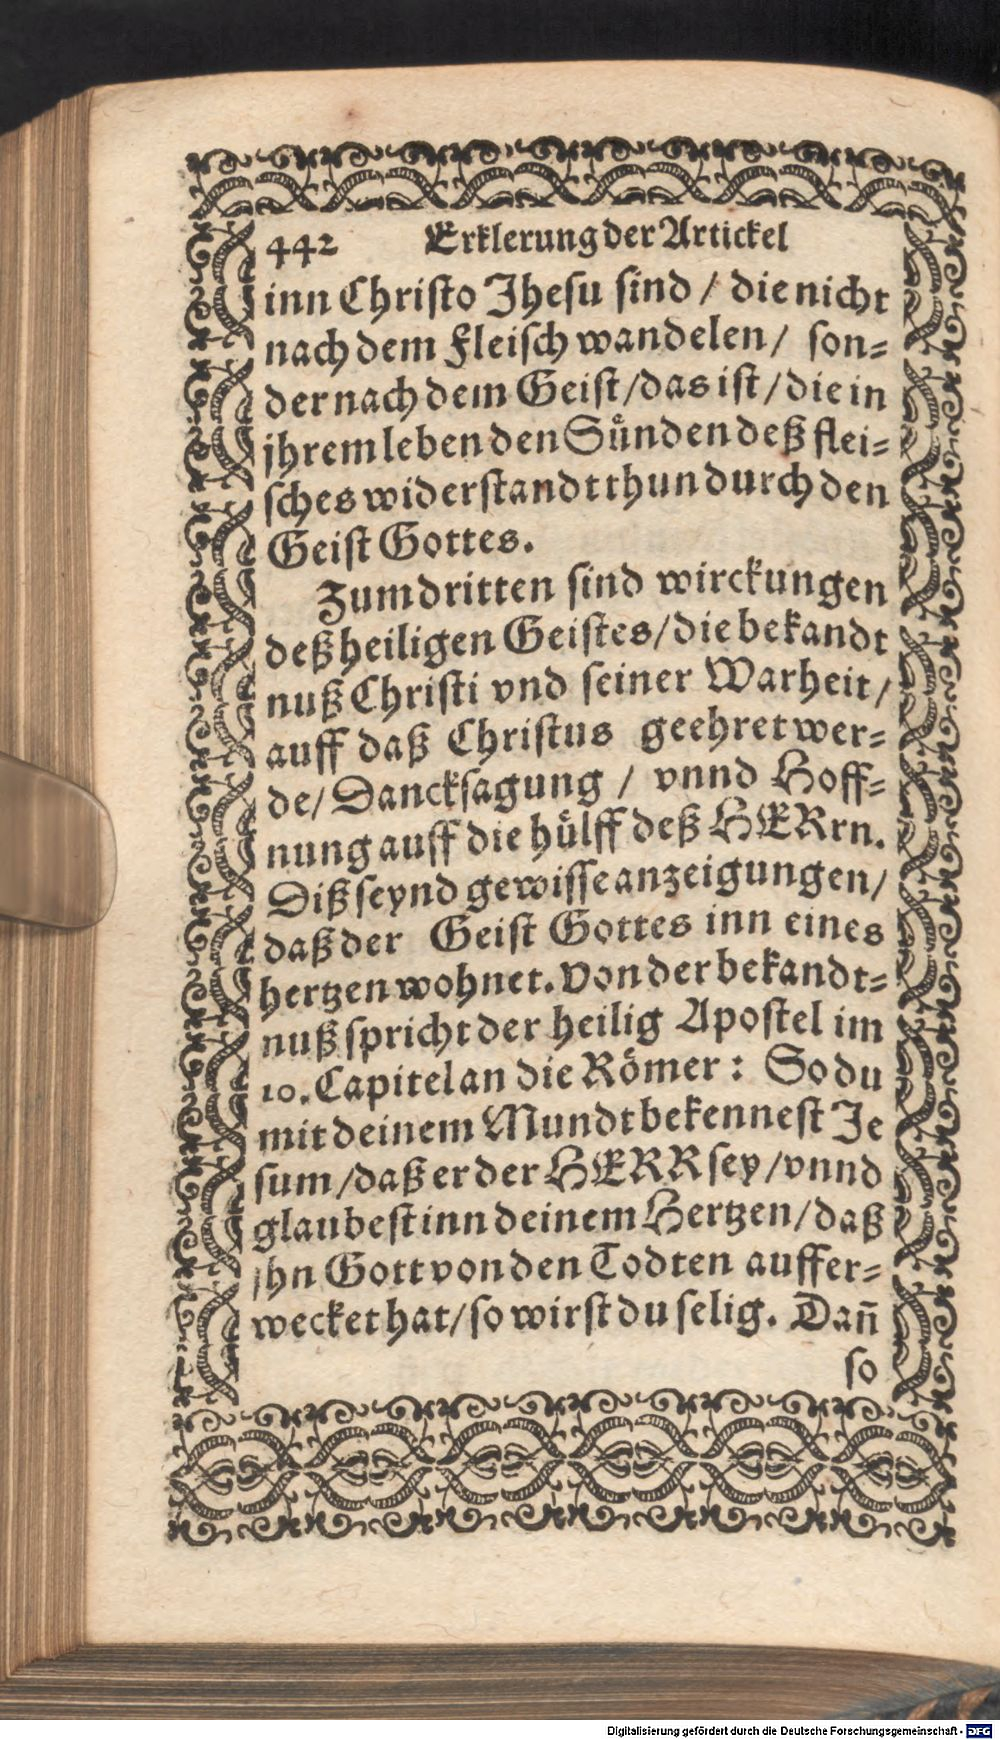 442 Erklerung der Artickel
inn Christo Jhesu sind / die nicht
nach dem Fleisch wandelen / son⸗
der nach dem Geist / das ist / die in
jhrem leben den Sünden deß flei⸗
sches widerstandt thun durch den
Geist Gottes.
Zum dritten sind wirckungen
deß heiligen Geistes / die bekandt
nuß Christi vnd seiner Warheit /
auff daß Christus geehret wer⸗
de / Dancksagung / vnnd Hoff⸗
nung auff die hülff deß HERrn.
Diß seynd gewisse anzeigungen /
daß der Geist Gottes inn eines
hertzen wohnet. Von der bekandt⸗
nuß spricht der heilig Apostel im
10. Capitel an die Römer : So du
mit deinem Mundt bekennest Je
sum / daß er der HERR sey / vnnd
glaubest inn deinem Hertzen / daß
jhn Gott von den Todten auffer⸗
wecket hat / so wirst du selig. Dañ
so
Digitalisierung gefördert durch die Deutsche Forschungsgemeinschaft - DFG